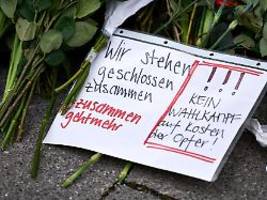 Wir stehen
geschlossen
zusammen
zusammen
geht mehr
!!!
KEIN
WAHLKAMPF
auf Kosten
der Opfer!